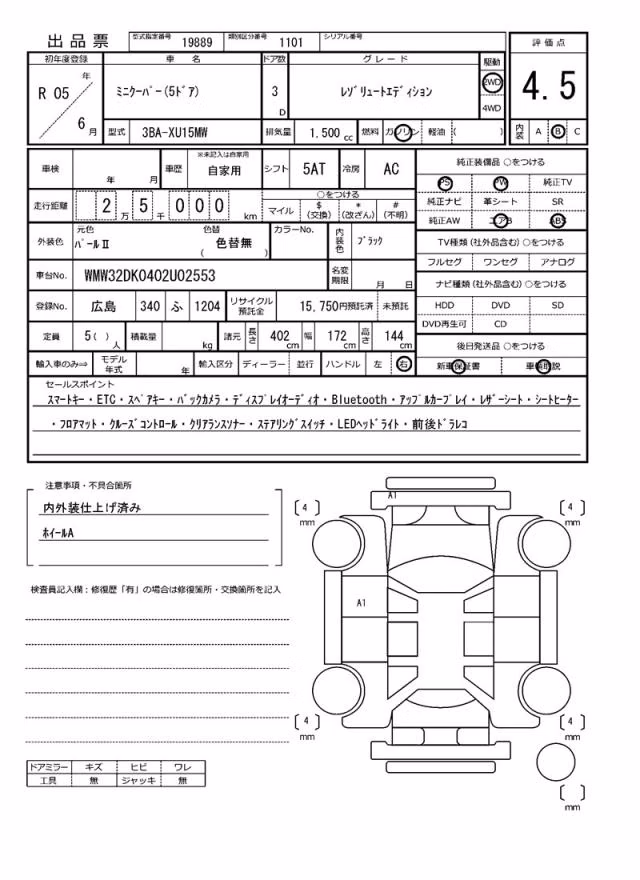 出品票 型式指定番号 19889 類別区分番号 1101 シリアル番号
評価点
4.5
初年度登録 車名 ドア数 グレード 駆動
R 05 年 6 月 ミニクーパー(5ドア) 3 D レゾリュートエディション 2WD 4WD
型式 3BA-XU15MW 排気量 1.500 cc 燃料 ガソリン 軽油 ( ) 内装 A B C
車検 年 月 車歴 ※未記入は自家用 自家用 シフト 5AT 冷房 AC
走行距離 2 万 5 千 0 0 0 km ○をつける
マイル $(交換) *(改ざん) #(不明)
外装色 元色 パールⅡ 色替 ( 色替無 ) カラーNo. 内装色 ブラック
車台No. WMW32DK0402U02553 名変期限 月 日
登録No. 広島 340 ふ 1204 リサイクル預託金 15,750円預託済 未預託
定員 5( )人 積載量 kg 諸元 長さ 402 cm 幅 172 cm 高さ 144 cm
輸入車のみ⇒ モデル年式 年 輸入区分 ディーラー 並行 ハンドル 左 右
純正装備品 ○をつける
PS PW 純正TV
純正ナビ 革シート SR
純正AW エアB ABS
TV種類(社外品含む)○をつける
フルセグ ワンセグ アナログ
ナビ種類(社外品含む)○をつける
HDD DVD SD
DVD再生可 CD
後日発送品 ○をつける
新車保証書 車輌取説
セールスポイント
スマートキー・ETC・スペアキー・バックカメラ・ディスプレイオーディオ・Bluetooth・アップルカープレイ・レザーシート・シートヒーター
・フロアマット・クルーズコントロール・クリアランスソナー・ステアリングスイッチ・LEDヘッドライト・前後ドラレコ
注意事項・不具合箇所
内外装仕上げ済み
ホイールA
検査員記入欄:修復歴「有」の場合は修復箇所・交換箇所を記入
ドアミラー キズ ヒビ ワレ
工具 無 ジャッキ 無
A1
[4] mm [4] mm
A1
[4] mm [4] mm
[ ] mm